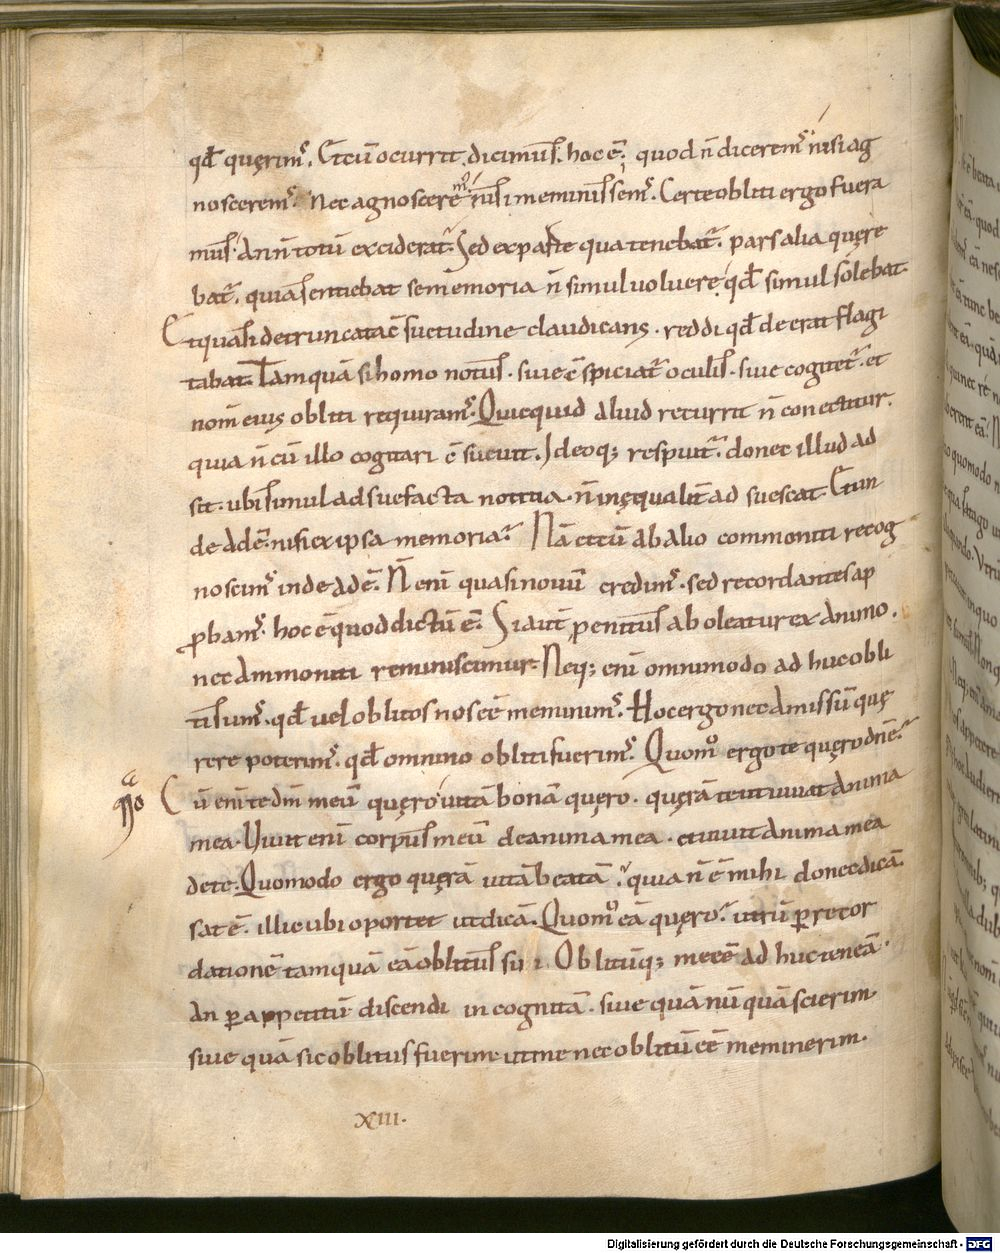 qđ quęrim᷒. Et cū ocurrit dicimus. hoc ē; quod n̄ dicerem᷒ nisi ag
noscerem᷒. Nec agnoscerem᷒ nisi meminissem᷒. Certe obliti ergo fuera
mus. An n̄ totū exciderat. Sed ex parte qua tenebat᷒. pars alia quęre
bat᷒. quia sentiebat se memoria n̄ simul uoluere qđ simul solebat.
Et quasi detruncata c̄suetudine claudicans. reddi qđ deerat flagi
tabat. Tamquā si homo notus. siue c̄spiciat᷒ oculis. siue cogitet᷒. et
nom̄ eius obliti requiram᷒. Quicquid aliud recurrit n̄ conectitur.
quia n̄ cū illo cogitari c̄sueuit. Ideoq; respuit᷒. donec illud ad
sit. ubi simul adsuefacta notitia. n̄ inęqualit̄ adquescat. Et un
de adē. nisi ex ipsa memoria? Nā et cū ab alio commoniti recog
noscim᷒ inde adē. N̄ eni quasi nouū credim᷒. sed recordantes ap
ꝓbam᷒. hoc ē quod dictū ē. Si aut̄ penitus aboleatur ex animo.
nec ammoniti reminiscimur. Neq; eni omnimodo adhuc obli
ti sum᷒. qđ uel oblitos nos eē meminim᷒. Hoc ergo nec amissū quę
rere poterim᷒. qđ omnino obliti fuerim᷒. Quom̊ ergo te quęro dn̄e?
Cū eni te dm̄ meū quęro uitā bonā quęro. quęrā te ut uiuat anima
mea. Uiuit eni corpus meū de anima mea. et uiuit anima mea
de te. Quomodo ergo quęrā uitā beatā? quia n̄ ē mihi donec dicā
sat ē. illic ubi oportet ut dicā. Quom̊ eā quęro? utrū ꝑ recor
dationē tamquā eā oblitus sū i. Oblitūq; me eē adhuc teneā.
An ꝑ appetitū discendi incognitā. siue quā nūquā scierim.
siue quā sic oblitus fuerim. ut me nec oblitū eē meminerim.
XIII.
Digitalisierung gefördert durch die Deutsche Forschungsgemeinschaft - DFG